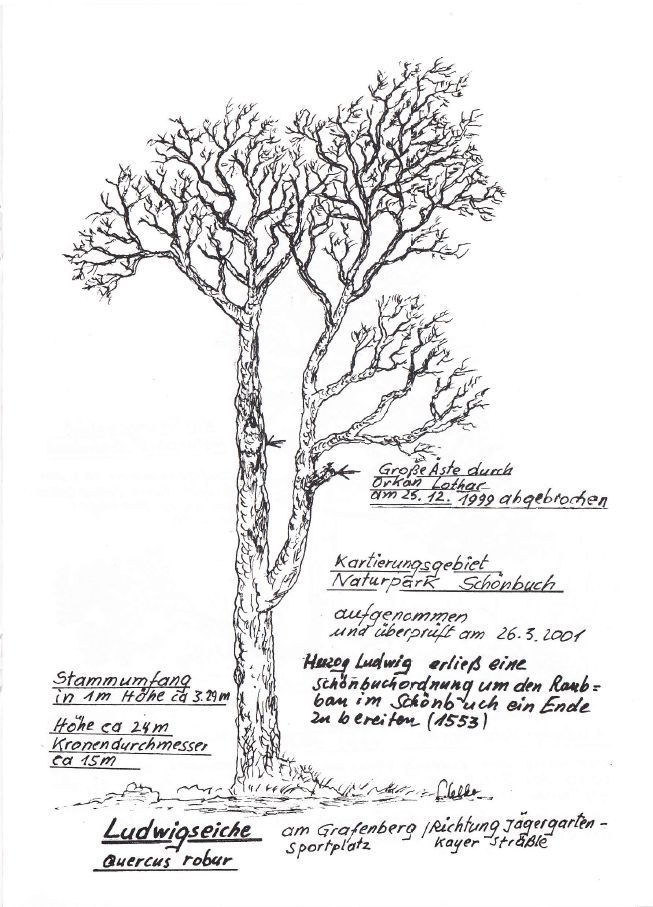 Große Äste durch
Orkan Lothar
am 25.12.1999 abgebrochen
Kartierungsgebiet
Naturpark Schönbuch
aufgenommen
und überprüft am 26.3.2001
Herzog Ludwig erließ eine
Schönbuchordnung um den Raub=
bau im Schönbuch ein Ende
zu bereiten (1553)
Stammumfang
in 1m Höhe ca 3.29m
Höhe ca 24m
Kronendurchmesser
ca 15m
Ludwigseiche am Grafenberg / Richtung Jägergarten -
Sportplatz Kayer Sträßle
Quercus robur